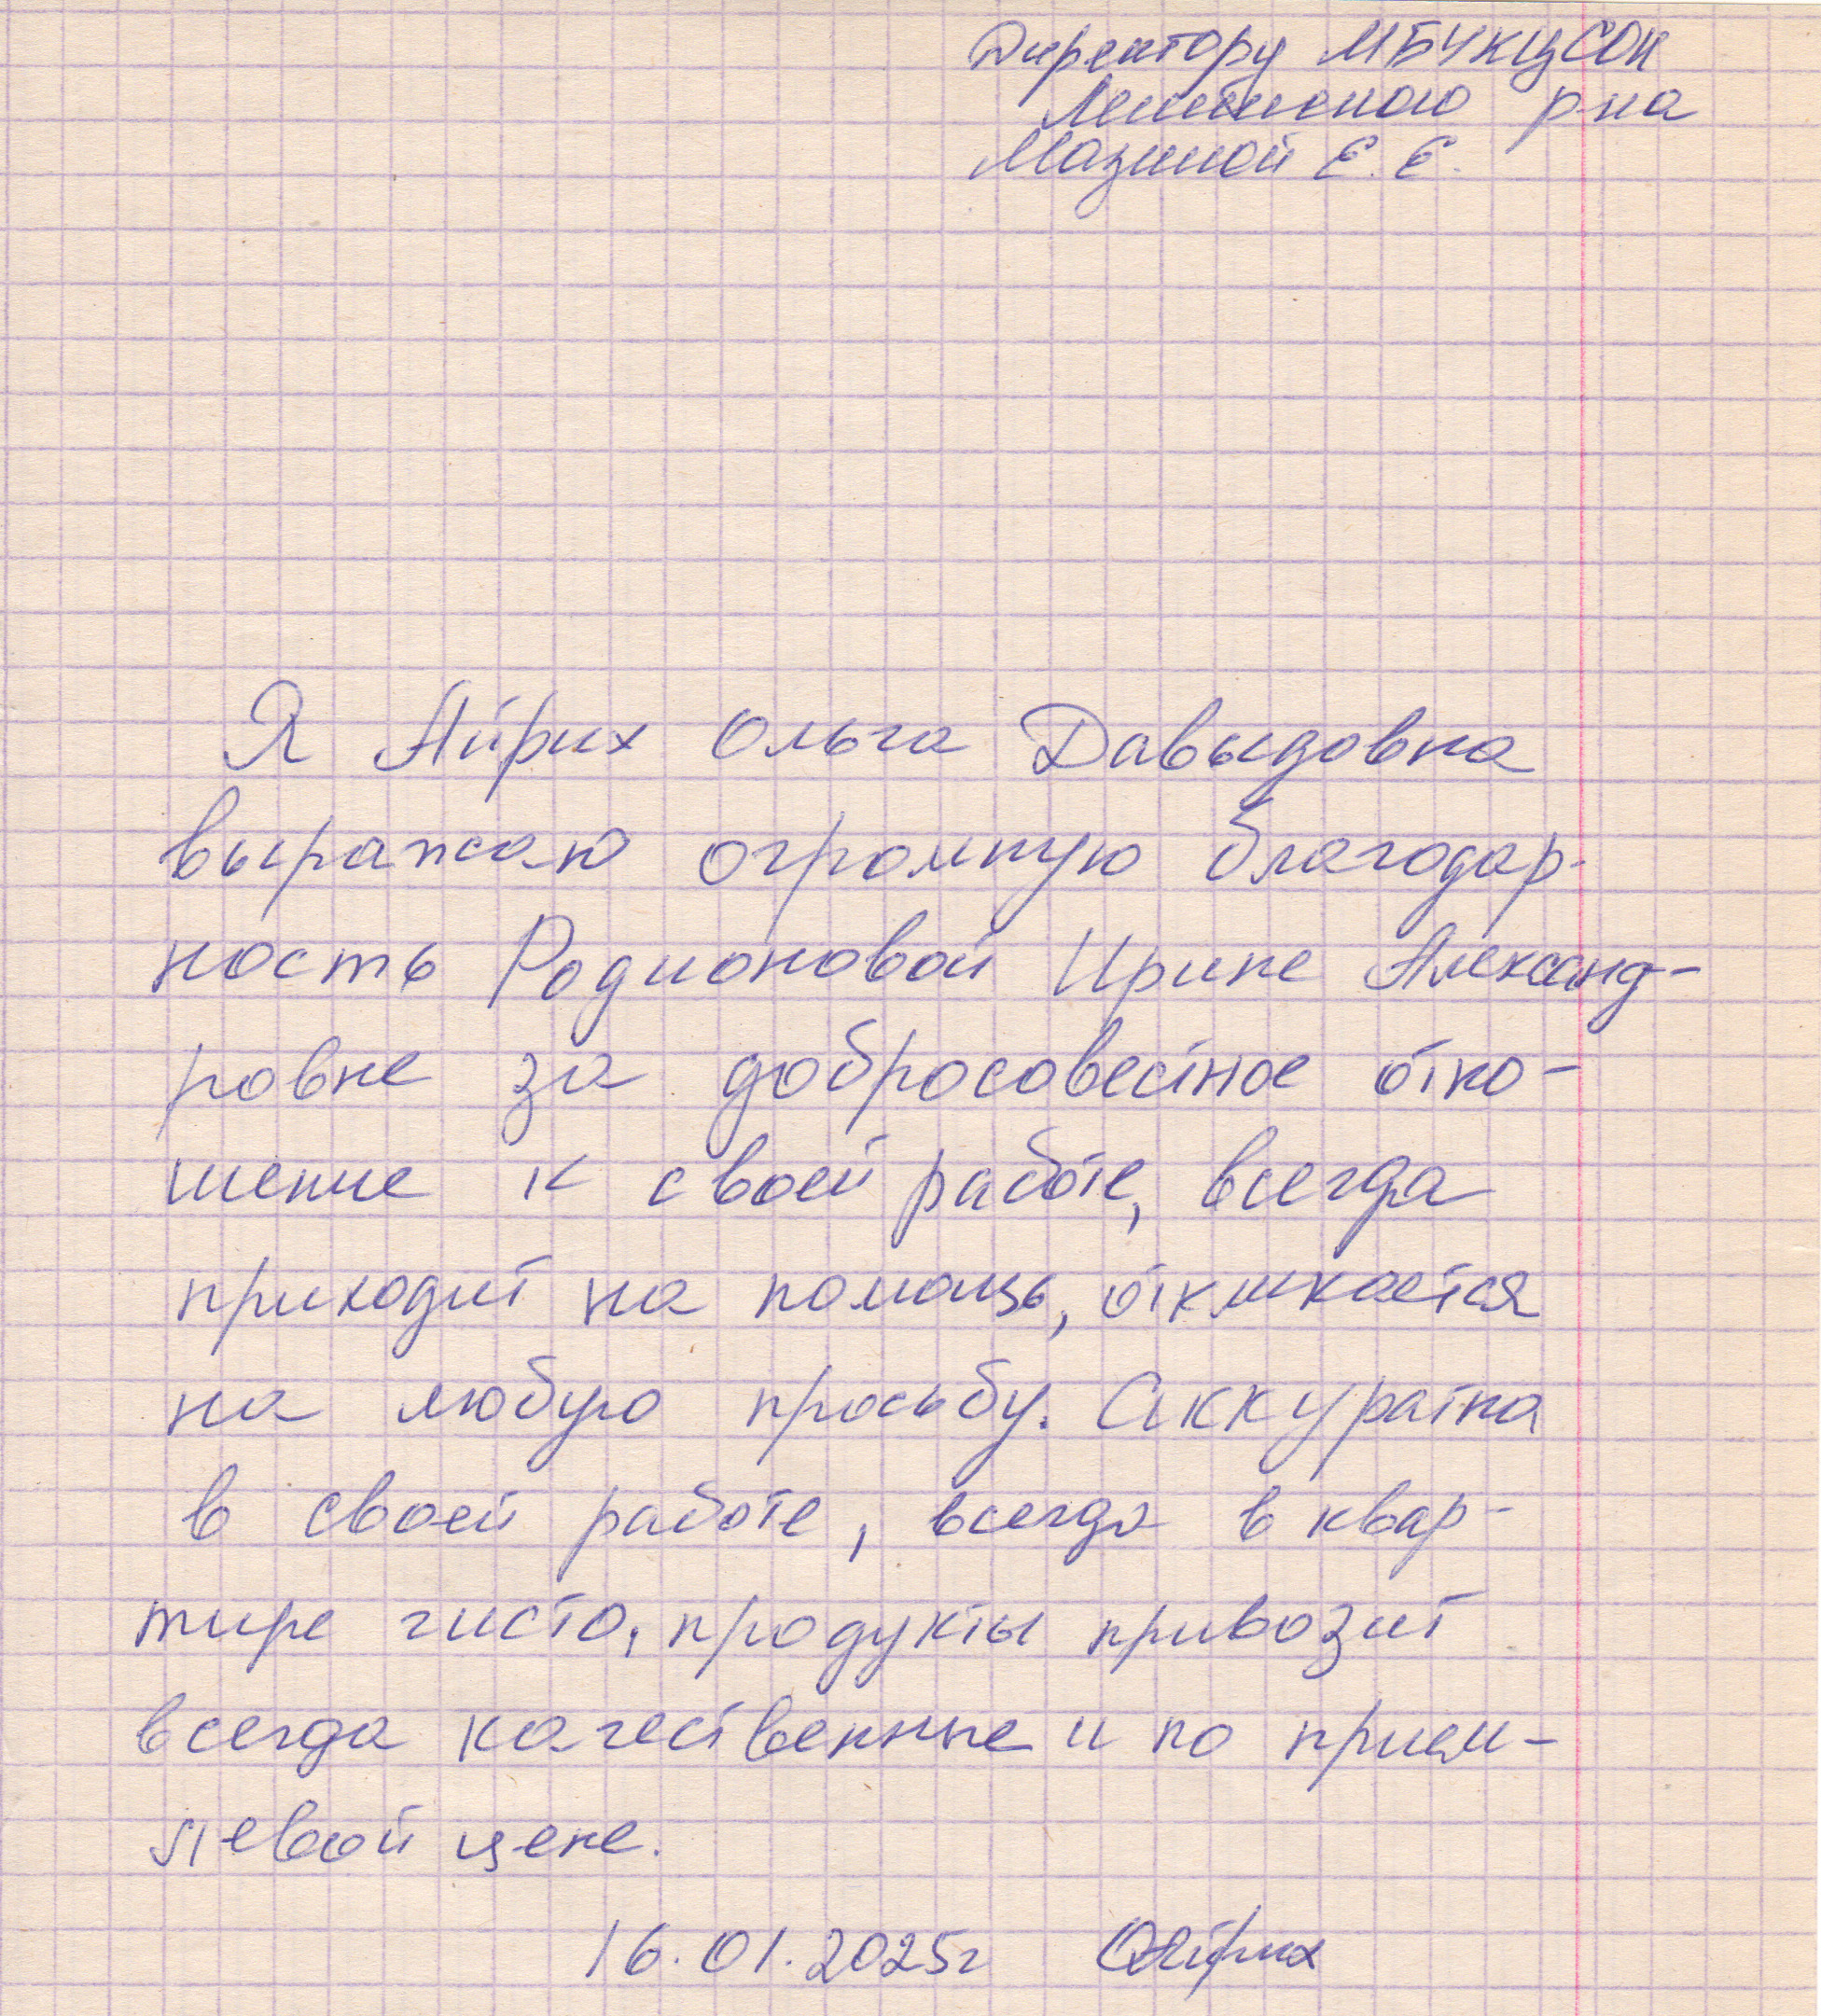 Директору МБУКЦСОН
р-на
Мазиной Е. Е.
Я Айрих Ольга Давыдовна
выражаю огромную благодар-
ность Родионовой Ирине Александ-
ровне за добросовестное отно-
шение к своей работе, всегда
приходит на помощь, откликается
на любую просьбу. Аккуратна
в своей работе, всегда в квар-
тире чисто, продукты привозит
всегда качественные и по прием-
левой цене.
16.01.2025г ОАйрих